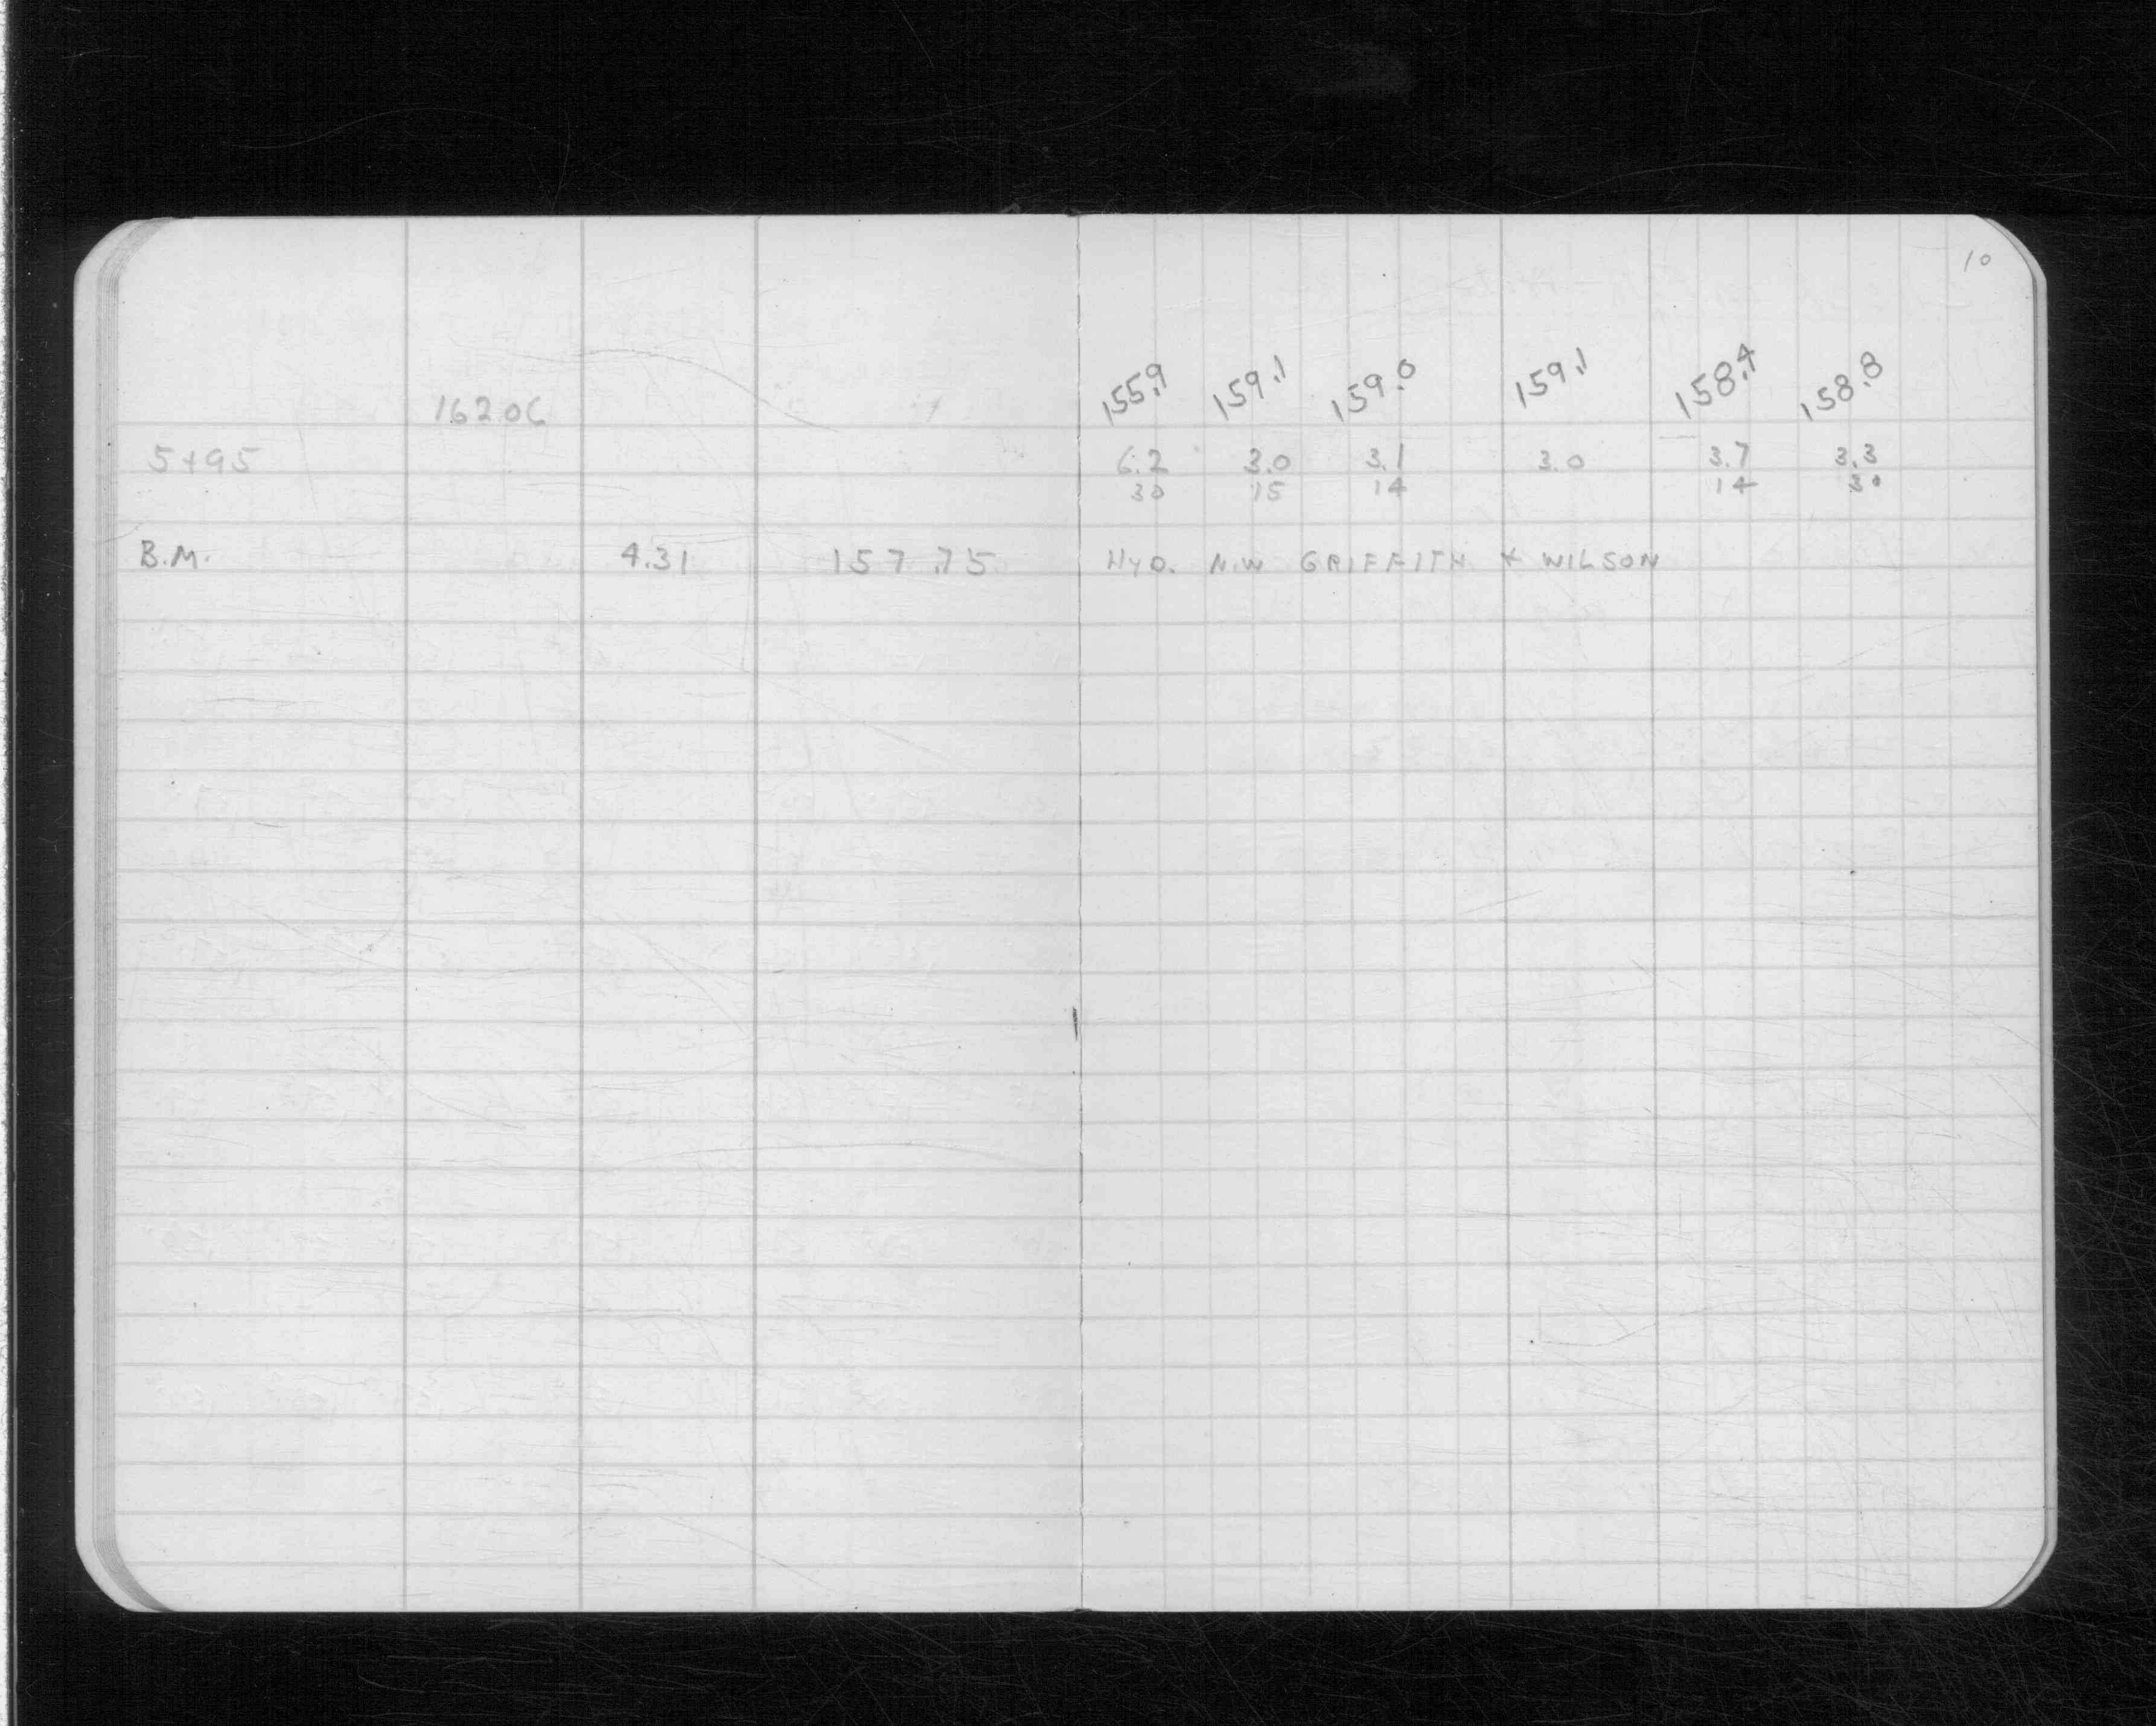 10
162.06 155.9 159.1 159.0 159.1 158.4 158.8
5+95 6.2 3.0 3.1 3.0 3.7 3.3
30 15 14 14 30
B.M. 4.31 157.75 HYD. N.W GRIFFITH & WILSON